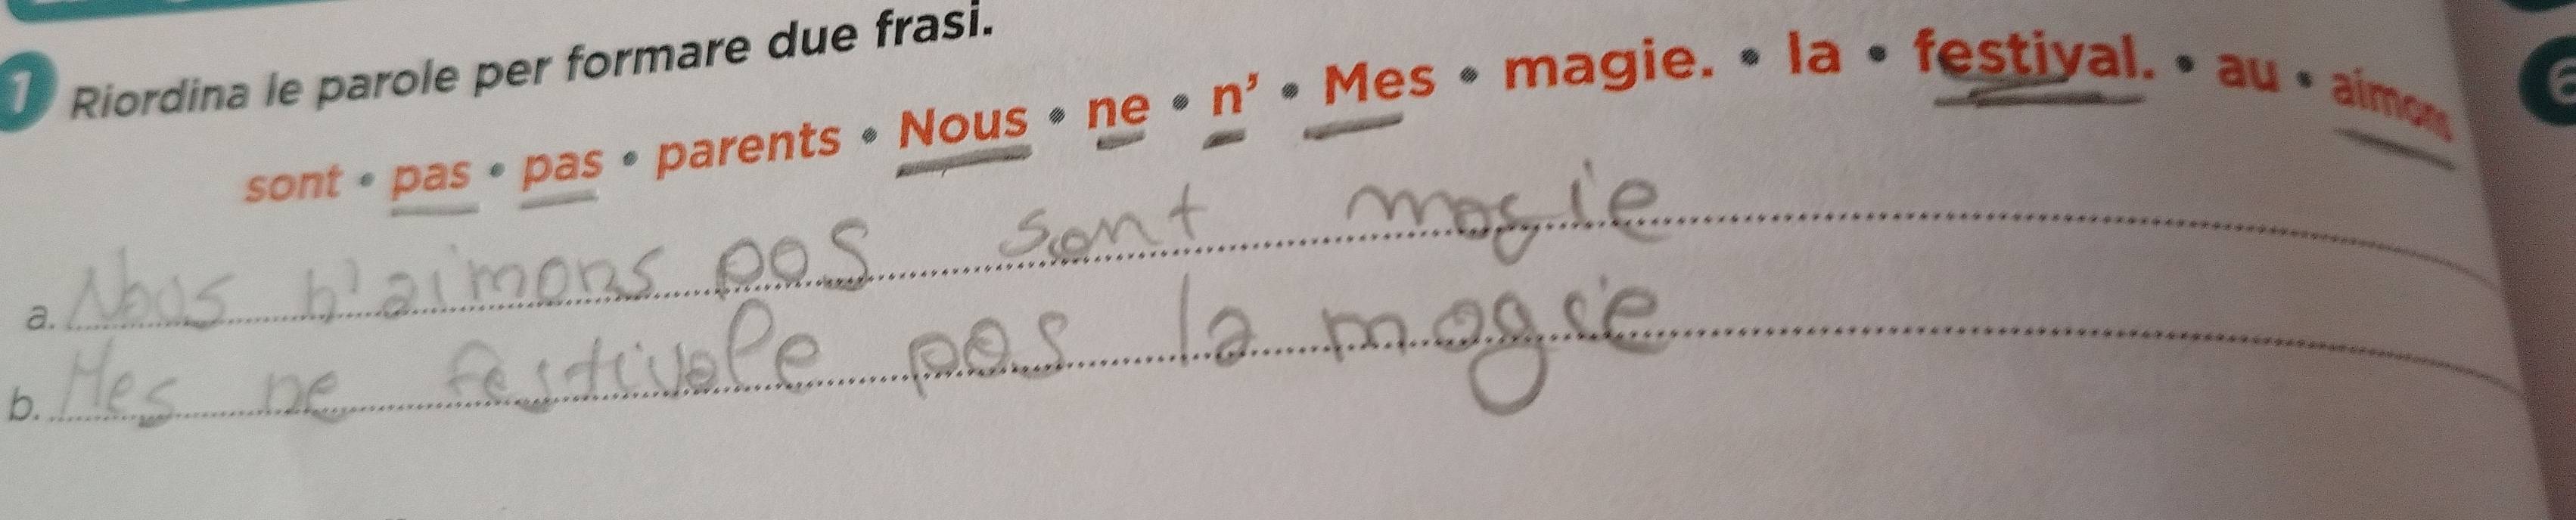 1 Riordina le parole per formare due frasi.
sont • pas • pas • parents • Nous • ne • n' • Mes • magie. • la • festival. • au • aimons
a. Nous n'aimons pas sont magie
b. Mes ne festivale pas la magie